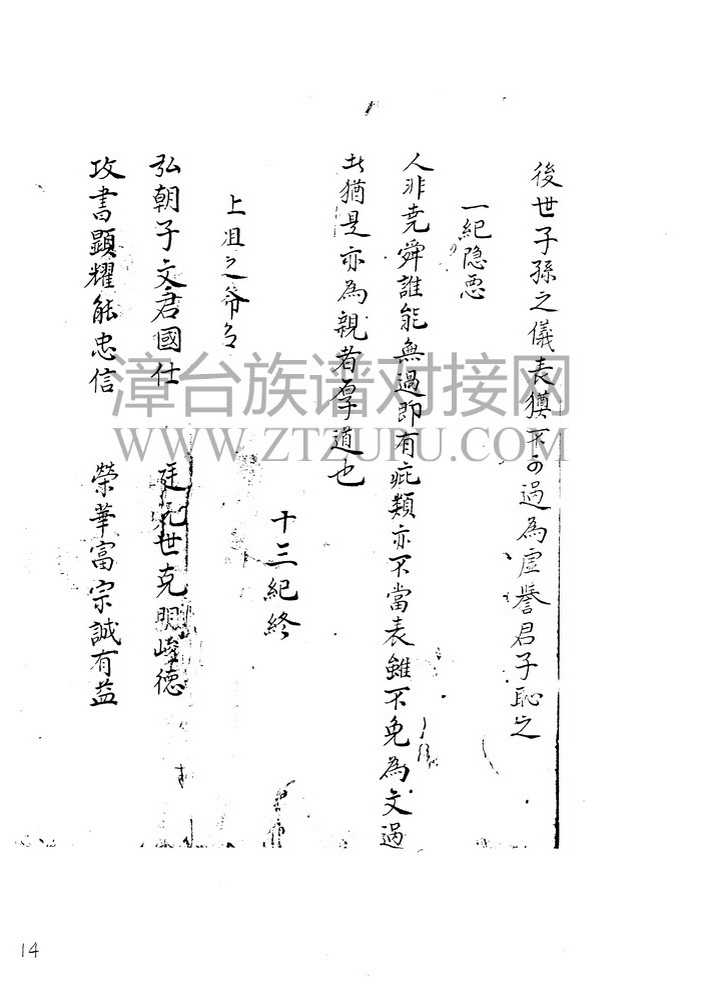 後世子孫之儀表獎不可過為虛譽君子恥之
一紀隐恶
人非堯舜誰能無過即有疵類亦不當表雖不免為文過
此猶是亦為親者厚道也
十三紀終
上祖之爷名
弘朝子文君國仕 廷元世克明峻德
攻書顕耀能忠信 榮華富宗誠有益
漳台族谱对接网
WWW.ZTZUPU.COM
14